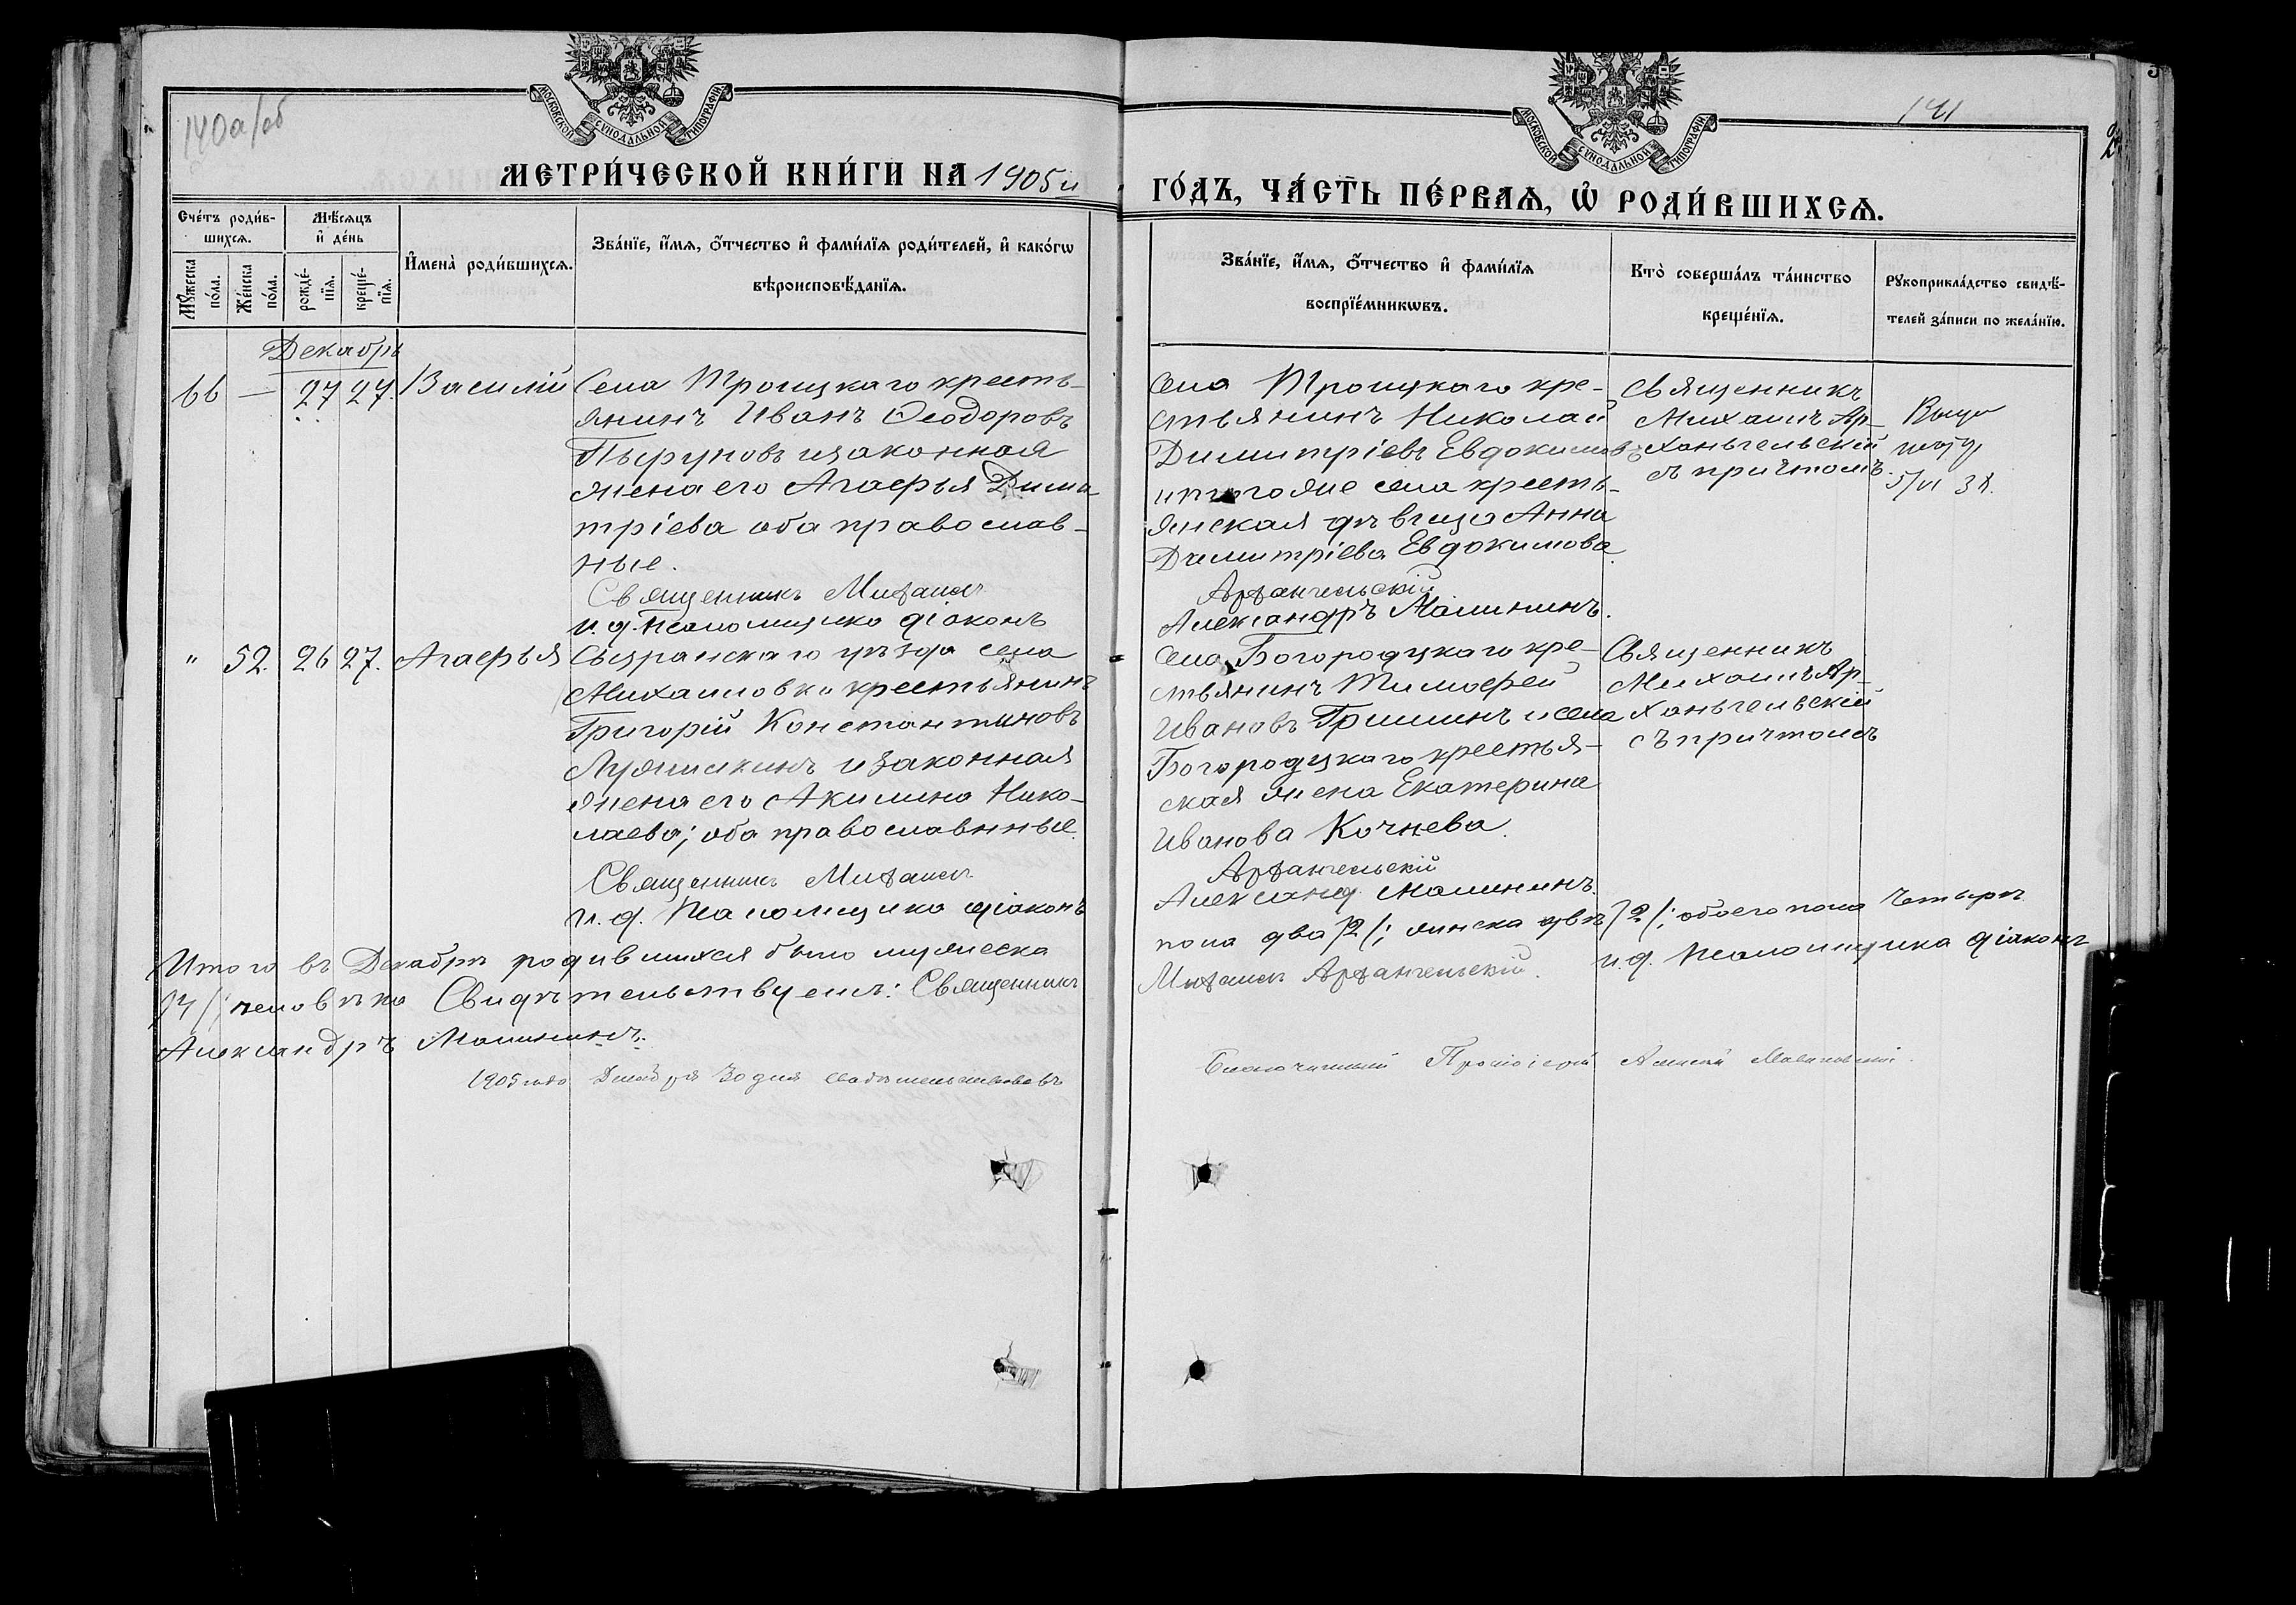 140а/об
141
МОСКОВСКОЙ СѴНОДАЛЬНОЙ ТИПОГРАФІИ
МОСКОВСКОЙ СѴНОДАЛЬНОЙ ТИПОГРАФІИ
МЕТРИ́ЧЕСКОЙ КНИ́ГИ НА 1905й
ГО́ДЪ, ЧА́СТЬ ПЕ́РВАѦ, Ѿ РОДИ́ВШИХСѦ.
Сче́тъ роди́в-
шихсѧ.
Мѣ́сѧцъ
и҆ де́нь
Мꙋ́жеска
по́ла.
Же́нска
по́ла.
рожде́-
нїѧ.
креще́-
нїѧ.
И҆мена̀ роди́вшихсѧ.
Зва́нїе, и҆́мѧ, ѻ҆́тчество и҆ фами́лїѧ роди́телей, и҆ како́гѡ
вѣроисповѣ́данїѧ.
Зва́нїе, и҆́мѧ, ѻ҆́тчество и҆ фами́лїѧ
воспрїе́мникѡвъ.
Кто̀ соверша́лъ та́инство
креще́нїѧ.
Рꙋкоприкла́дство свидѣ́-
телей за́писи по жела́нїю.
Декабрь
66 — 27 27. Василій
Села Троицкаго кресть-
янинъ Иванъ Ѳеодоровъ
Пыруновъ и законная
жена его Агаѳья Дими
тріева оба православ-
ные.
Священникъ Михаилъ
и.д. псаломщика діаконъ
Села Троицкаго кре-
стьянинъ Николай
Димитріевъ Евдокимовъ
и того же села кресть-
янская дѣвица Анна
Димитріева Евдокимова.
Архангельскій
Александръ Малининъ.
Священникъ
Михаилъ Ар-
хангельскій
съ причтомъ.
5/VI 38.
" 52. 26 27. Агаѳья
Сызранскаго уѣзда села
Михаиловки крестьянинъ
Григорій Константиновъ
Лужинскинъ и законная
жена его Акилина Нико-
лаева; оба православнные.
Священникъ Михаилъ
и.д. Псаломщика діаконъ
Села Богородцкаго кре-
стьянинъ Тимоѳей
Ивановъ Гришинъ и села
Богородцкаго крестья-
ская жена Екатерина
Иванова Кочнева.
Архангельскій
Александ. Малининъ.
Священникъ
Михаилъ Ар-
хангельскій
съ причтомъ
Итого въ Декабрѣ родившихся было мужеска
пола два /2/; женска двѣ /2/; обоего пола четыре
/4/; человѣка Свидѣтельствуемъ: Священникъ
Михаилъ Архангельскій. и.д. Псаломщика діаконъ
Александръ Малининъ.
1905 года Декабря 30 дня свидѣтельствовалъ
Благочинный Протоіерей Алексій